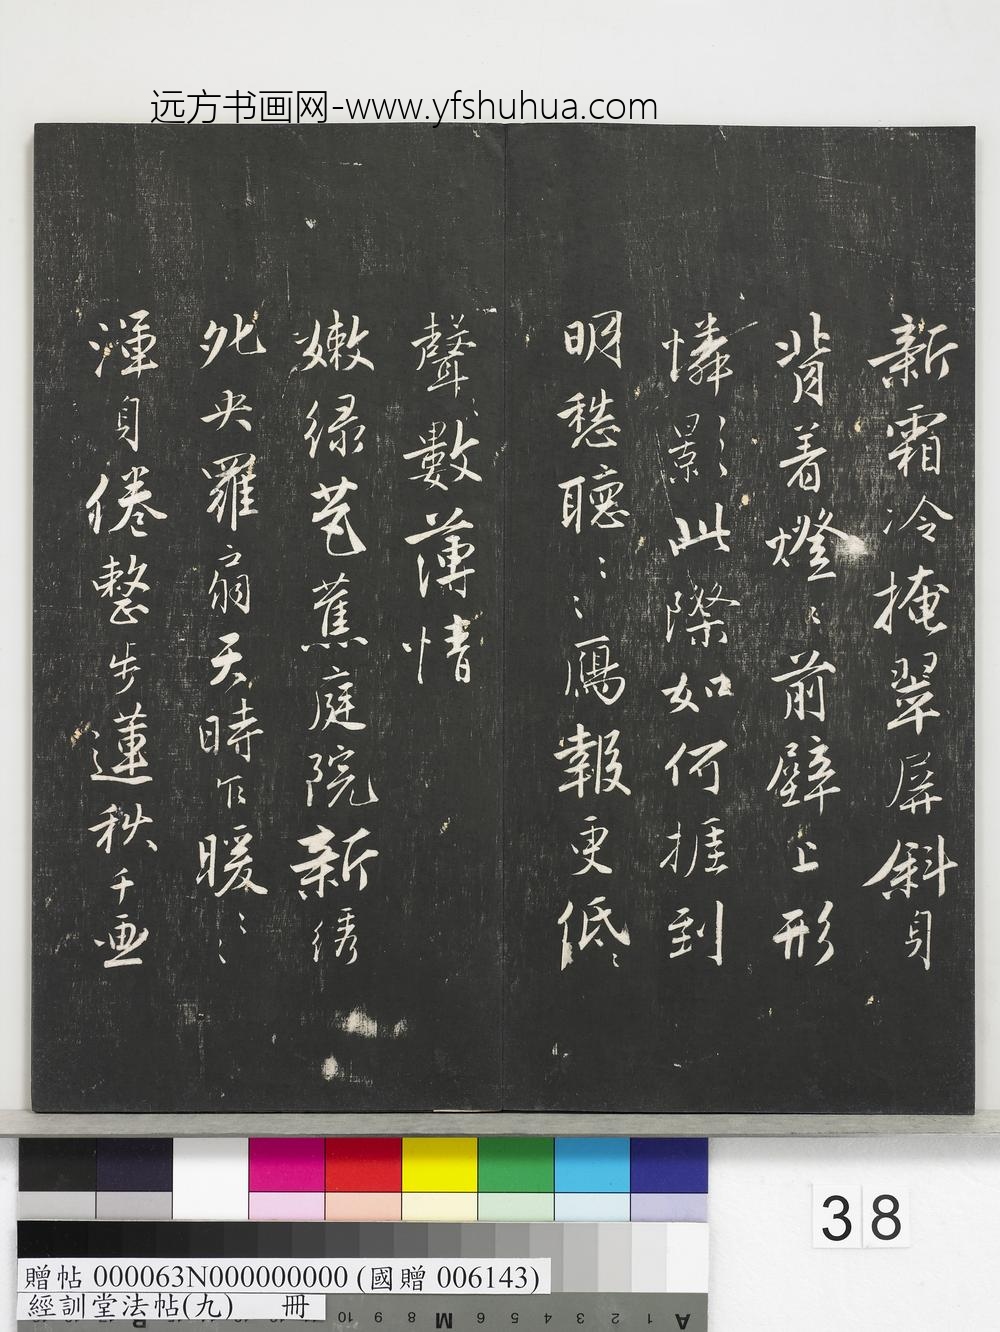 远方书画网-www.yfshuhua.com
新霜冷掩翠屏斜身
背着燈〻前壁上形
憐〻影此際如何捱到
明愁聽〻〻鴈報更低〻
聲〻數薄情
嫩緑芭蕉庭院新綉
夗央羅扇天時乍暖〻〻
渾身倦整步蓮秋千画
38
贈帖 000063N000000000 (國贈 006143)
經訓堂法帖(九) 冊